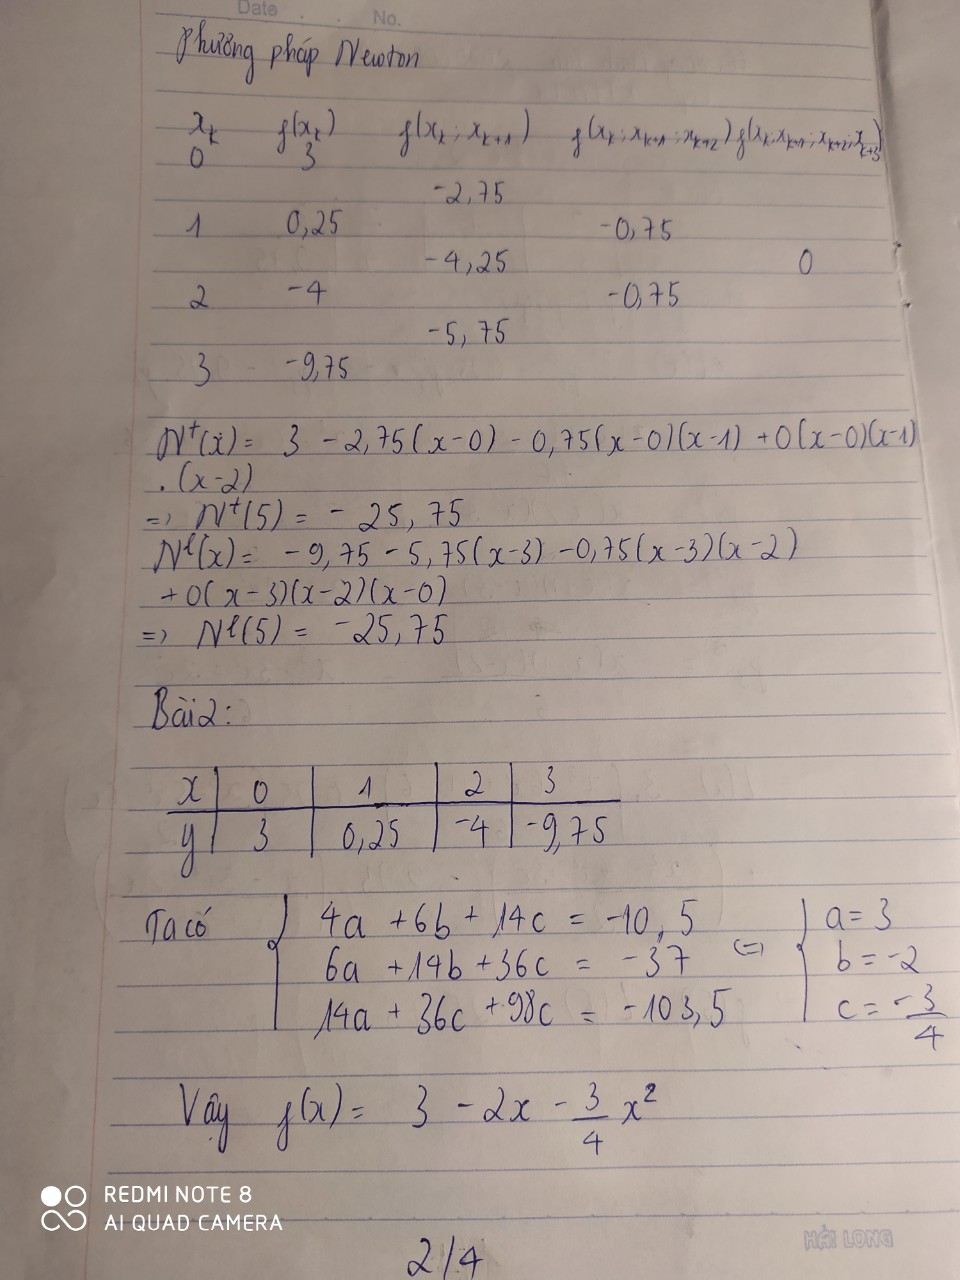 Date . . No.
Phương pháp Newton
x_k f(x_k) f(x_k; x_{k+1}) f(x_k; x_{k+1}; x_{k+2}) f(x_k; x_{k+1}; x_{k+2}; x_{k+3})
0 3
-2,75
1 0,25 -0,75
-4,25 0
2 -4 -0,75
-5,75
3 -9,75
N^t(x) = 3 - 2,75(x-0) - 0,75(x-0)(x-1) + 0(x-0)(x-1)
. (x-2)
=> N^t(5) = - 25,75
N^l(x) = -9,75 - 5,75(x-3) - 0,75(x-3)(x-2)
+ 0(x-3)(x-2)(x-0)
=> N^l(5) = -25,75
Bài 2:
x 0 1 2 3
y 3 0,25 -4 -9,75
Ta có { 4a + 6b + 14c = -10,5
6a + 14b + 36c = -37
14a + 36c + 98c = -103,5
<=> { a = 3
b = -2
c = -3/4
Vậy f(x) = 3 - 2x - 3/4 x²
REDMI NOTE 8
AI QUAD CAMERA
HẢI LONG
2/4